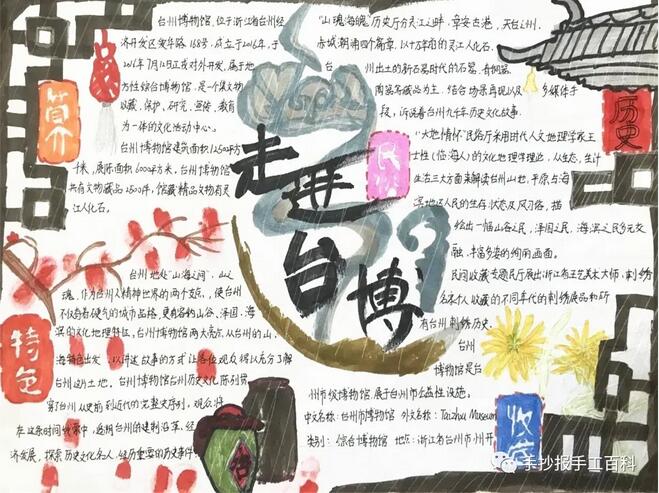 走进台博
简介
台州博物馆,位于浙江省台州经
济开发区爱华路168号,成立于2016年,于
2016年7月12日正式对外开发,属于地
方性综合博物馆,是一个集文物
收藏、保护、研究、宣传、教育
为一体的文化活动中心。
台州博物馆建筑面积12500平方
千米,展陈面积6000平方米,台州博物馆
共有文物藏品2500件,馆藏精品文物有灵
江人化石。
特色
台州地处“山海之间”,山之
魂,作为台州人精神世界的两个支点,使台州
不仅有着硬气的城市品格,更有容纳山谷、泽国、海
滨的文化地理特征,台州博物馆两大亮点从台州的山、
海特色出发,以讲述故事的方式让各位观众得以充分了解
台州这方土地,台州博物馆台州历史文化陈列贯
穿了台州从史前到近代的完整史序列,观众将
在这条时间线索中,透明台州的建制沿革、经
济发展,探索历史文化名人,经历重要的历史事件
历史
“山魂海魄”历史厅分灵江之畔,章安古港,天台之州,
赤城潮涌四个篇章,以十万年前的灵江人化石、
台州出土的新石器时代的石器、青铜器、
陶器瓷器为主,结合场景再现以及多媒体手
段,诉说着台州九千年历史文化故事。
民俗
“大地情怀”民俗厅采用时代人文地理学家王
士性(临海人)的文化地理学理论,从生态,生计
生活三大方面来解读台州山地,平原与海
滨地区人民的生存状态及风习俗,描
绘出一幅山谷之民,泽国之民,海滨之民多元交
融,丰富多姿的绚丽画面。
民间收藏专题民厅展出浙江省工艺美术大师,刺绣
名家个人收藏的不同年代的刺绣展品和所
有台州刺绣历史。
收藏
台州
博物馆是台
州市级博物馆,属于台州市公益性设施。
中文名称:台州市博物馆 外文名称:Taizhou Museum
类别:综合博物馆 地区:浙江省台州市
手抄报手工百科